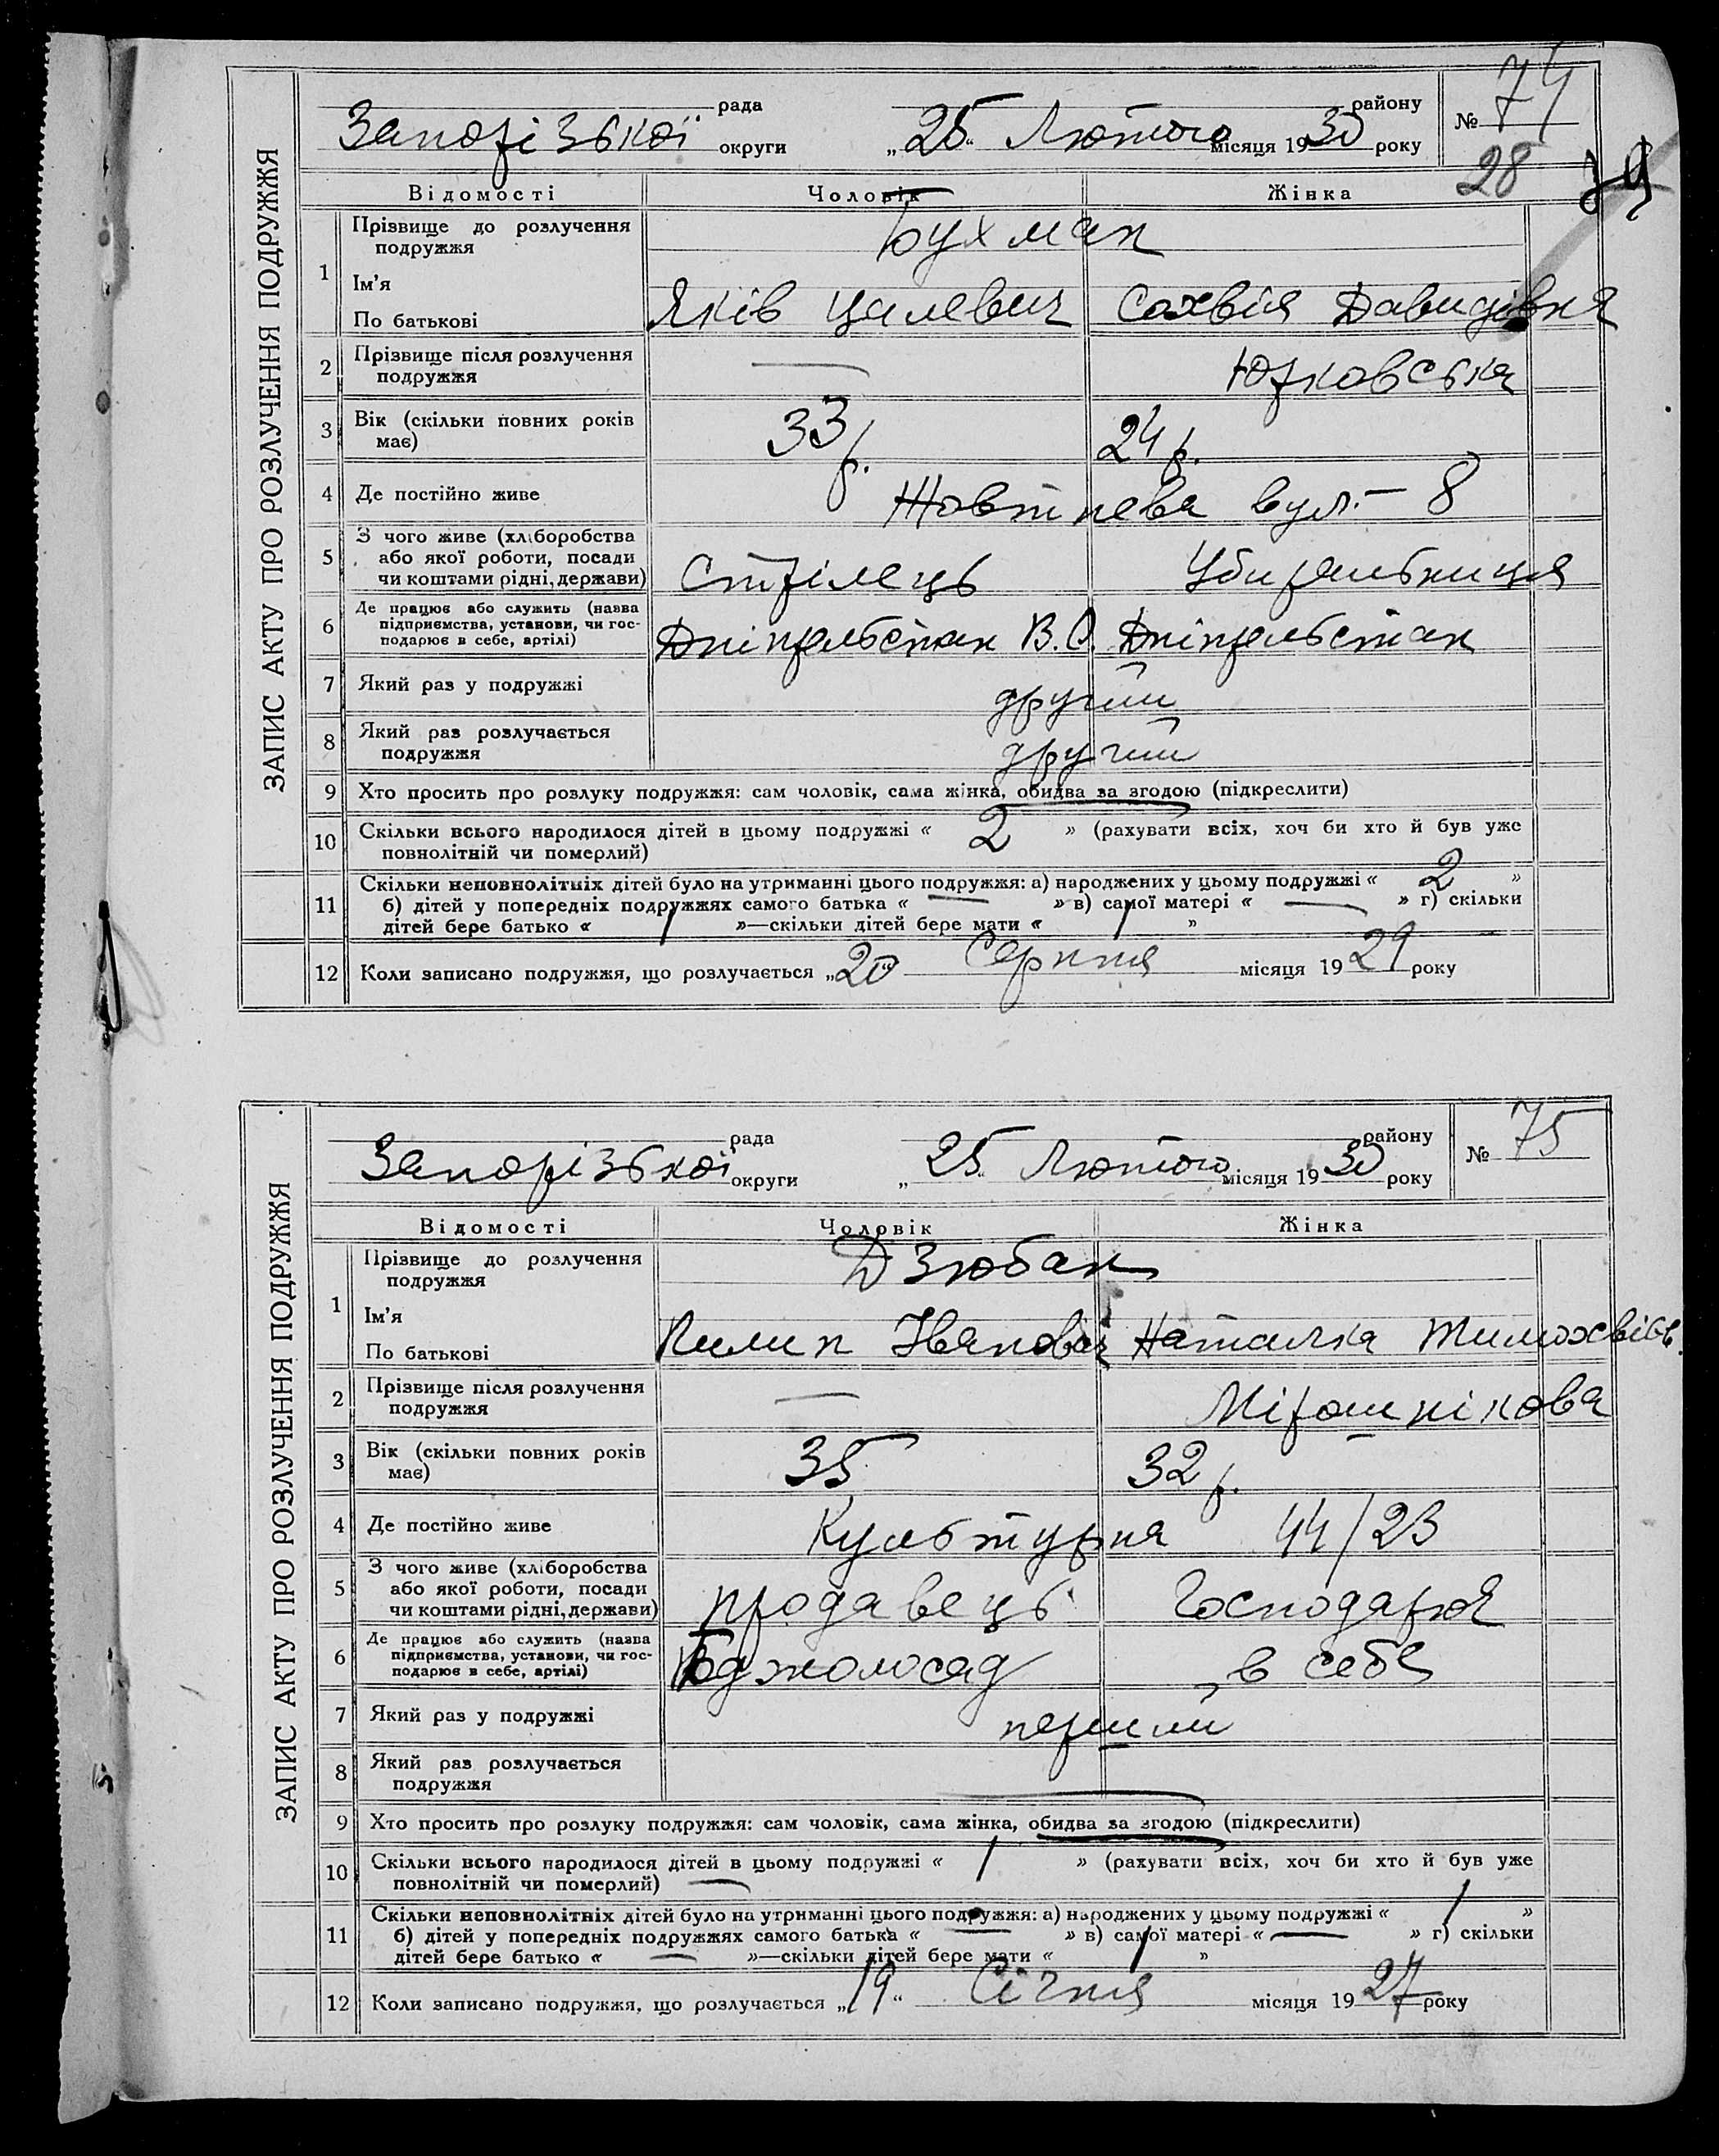 ЗАПИС АКТУ ПРО РОЗЛУЧЕННЯ ПОДРУЖЖЯ
рада району
Запорізької округи „25“ Лютого місяця 1930 року № 74
28 79
Відомості Чоловік Жінка
1 Прізвище до розлучення подружжя Бухман
Ім'я
По батькові Яків Цалевич Сахвія Давидівна
2 Прізвище після розлучення подружжя — Юрковська
3 Вік (скільки повних років має) 33 р. 24 р.
4 Де постійно живе Жовтнева вул. – 8
5 З чого живе (хліборобства або якої роботи, посади чи коштами рідні, держави) Стрілець Убиральниця
6 Де працює або служить (назва підприємства, установи, чи господарює в себе, артілі) Дніпрельстан В.О. Дніпрельстан
7 Який раз у подружжі другий
8 Який раз розлучається подружжя другий
9 Хто просить про розлуку подружжя: сам чоловік, сама жінка, обидва за згодою (підкреслити)
10 Скільки всього народилося дітей в цьому подружжі « 2 » (рахувати всіх, хоч би хто й був уже
повнолітній чи померлий)
11 Скільки неповнолітніх дітей було на утриманні цього подружжя: а) народжених у цьому подружжі « 2 »
б) дітей у попередніх подружжях самого батька « — » в) самої матері « — » г) скільки
дітей бере батько « 1 »—скільки дітей бере мати « 1 »
12 Коли записано подружжя, що розлучається „20“ Серпня місяця 1929 року
ЗАПИС АКТУ ПРО РОЗЛУЧЕННЯ ПОДРУЖЖЯ
рада району
Запорізької округи „25“ Лютого місяця 1930 року № 75
Відомості Чоловік Жінка
1 Прізвище до розлучення подружжя Дзюбан
Ім'я
По батькові Пилип Іванович Наталка Тимохвіїв.
2 Прізвище після розлучення подружжя — Мірошнікова
3 Вік (скільки повних років має) 35 32 р.
4 Де постійно живе Культурна 44/23
5 З чого живе (хліборобства або якої роботи, посади чи коштами рідні, держави) продавець Господарює
6 Де працює або служить (назва підприємства, установи, чи господарює в себе, артілі) Бджолосад в себе
7 Який раз у подружжі перший
8 Який раз розлучається подружжя —
9 Хто просить про розлуку подружжя: сам чоловік, сама жінка, обидва за згодою (підкреслити)
10 Скільки всього народилося дітей в цьому подружжі « 1 » (рахувати всіх, хоч би хто й був уже
повнолітній чи померлий) —
11 Скільки неповнолітніх дітей було на утриманні цього подружжя: а) народжених у цьому подружжі « 1 »
б) дітей у попередніх подружжях самого батька « — » в) самої матері « — » г) скільки
дітей бере батько « — »—скільки дітей бере мати « 1 »
12 Коли записано подружжя, що розлучається „19“ Січня місяця 1927 року